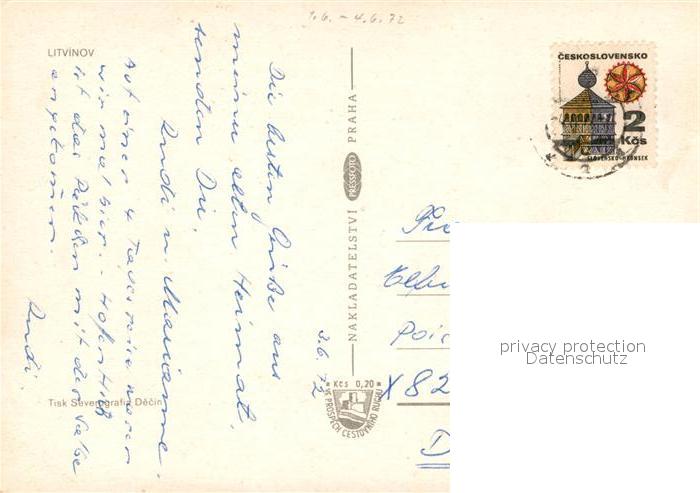 1.6. – 4.6.72
LITVÍNOV
Die besten Grüße aus
meiner alten Heimat,
senden Dir,
Rudi u. Marianne.
Auf einer 4 Tagereise waren
wir mal hier. - Hoffentlich
ist das Päckchen mit der
angekommen.
Rudi.
3.6.72
Tisk Severografia Děčín
NAKLADATELSTVÍ PRESSFOTO PRAHA
Kčs 0,20
VE PROSPĚCH CESTOVNÍHO RUCHU
ČESKOSLOVENSKO
2
Kčs
SLOVENSKO-HRONSEK
X82
D
privacy protection
Datenschutz